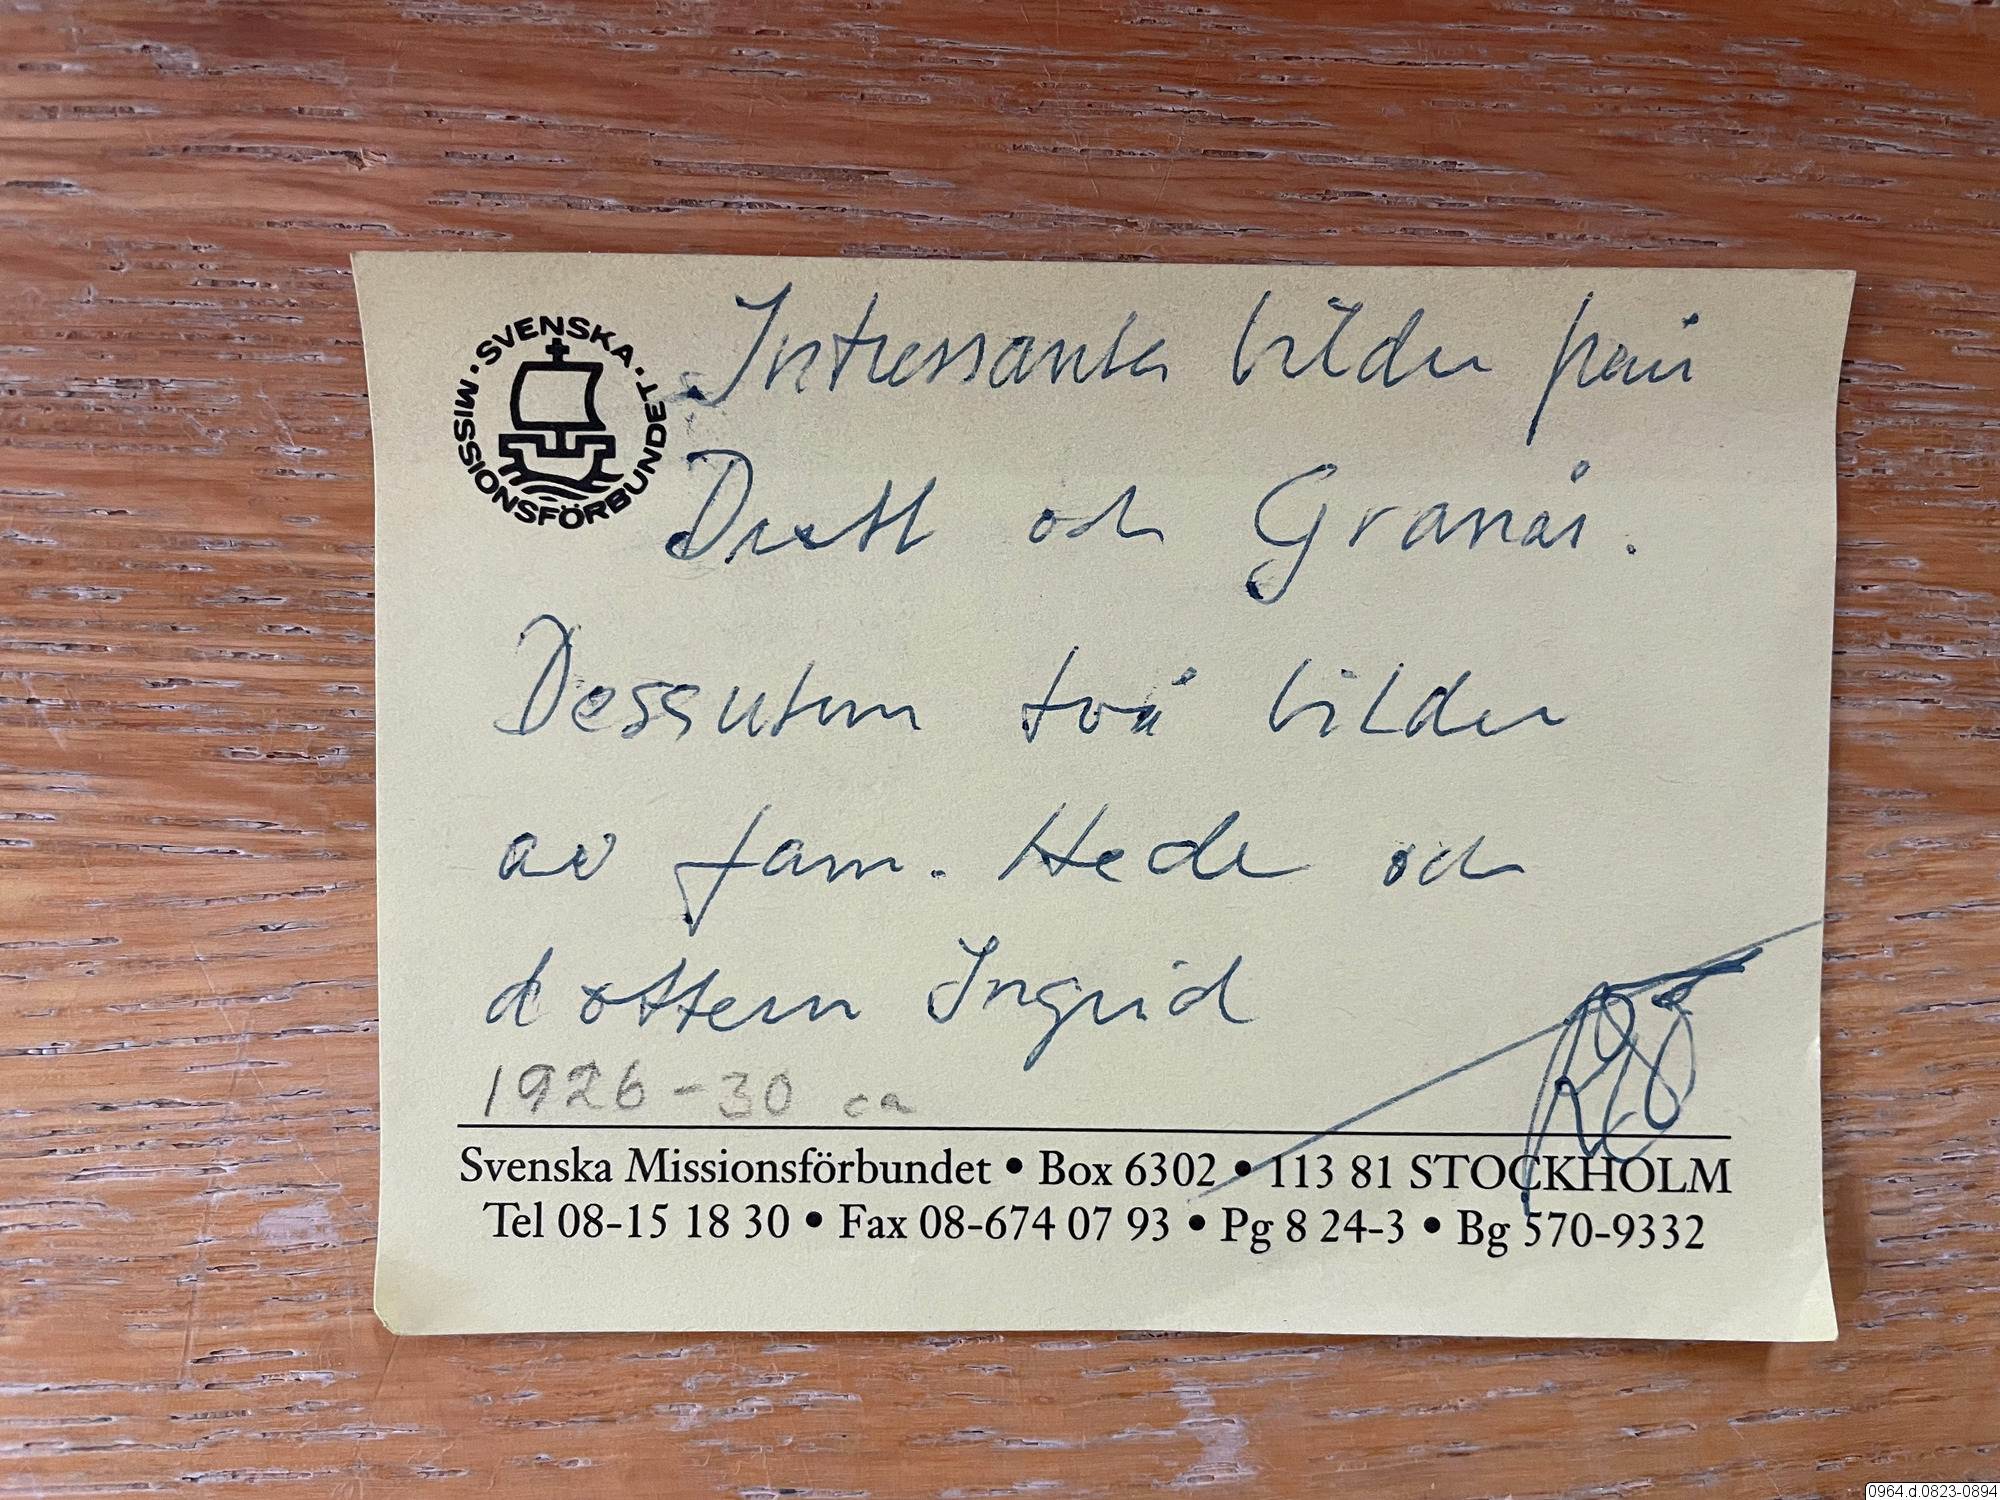 SVENSKA · MISSIONSFÖRBUNDET ·
Intressanta bilder på
och Granås.
Dessutom två bilder
av fam. Hede och
dottern Ingrid
1926-30 ca
Svenska Missionsförbundet • Box 6302 • 113 81 STOCKHOLM
Tel 08-15 18 30 • Fax 08-674 07 93 • Pg 8 24-3 • Bg 570-9332
0964.d.0823-0894